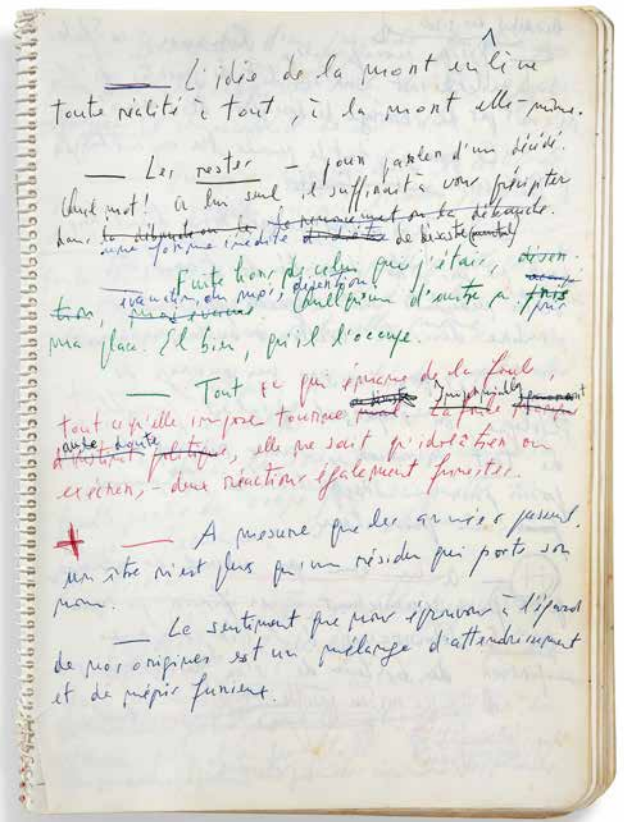 1
— L'idée de la mort enlève
toute réalité à tout, à la mort elle-même.
— Les restes – pour parler d'un décédé.
Quel mot! à lui seul il suffirait à vous précipiter
dans la débandade ou le renoncement ou la débauche.
une forme inédite de désastre (mental)
— Fuite hors de celui que j'étais,
évanoui, ou moi, Quelqu'un d'autre a pris
ma place. Eh bien, qu'il l'occupe.
— Tout ce qui émane de la foule,
tout ce qu'elle impose tourne mal. La foule
d'instinct politique, elle ne sait qu'idolâtrer ou
exécrer, – deux réactions également funestes.
+ — A mesure que les années passent,
un être n'est plus qu'un résidu qui porte son
nom.
— Le sentiment que nous éprouvons à l'égard
de nos origines est un mélange d'attendrissement
et de mépris furieux.